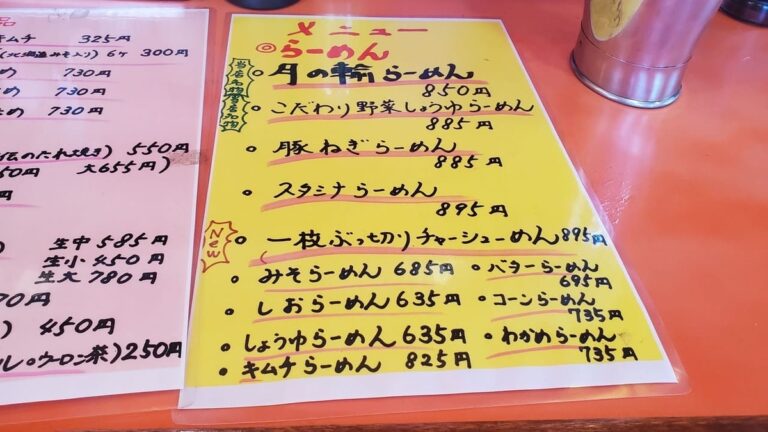 品
キムチ 325円
(北海道みそ入り) 6ケ 300円
め 730円
め 730円
め 730円
のたれ焼き) 550円
50円 大655円)
円
) 生中 585円
生小 450円
生大 780円
70円
) 450円
ル・ウーロン茶) 250円
メニュー
◎らーめん
当店名物
月の輪らーめん
850円
当店名物
こだわり野菜しょうゆらーめん
885円
豚ねぎらーめん
885円
スタミナらーめん
895円
New
一枝ぶっ切りチャーシューめん 895円
みそらーめん 685円
しおらーめん 635円
しょうゆらーめん 635円
キムチらーめん 825円
バターらーめん
695円
コーンらーめん
735円
わかめらーめん
735円